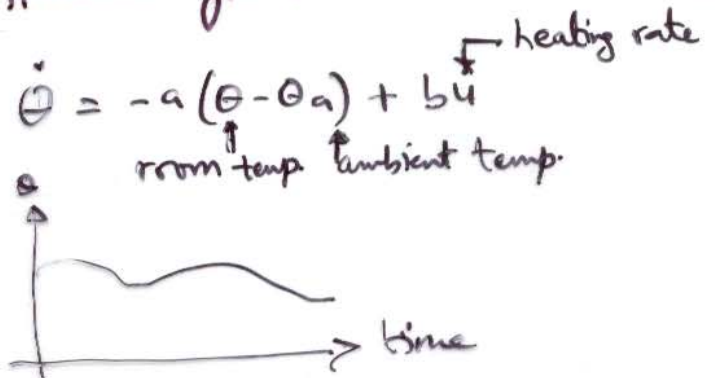 heating rate
θ̇ = -a (θ - θa) + bu
room temp. ambient temp.
θ
time